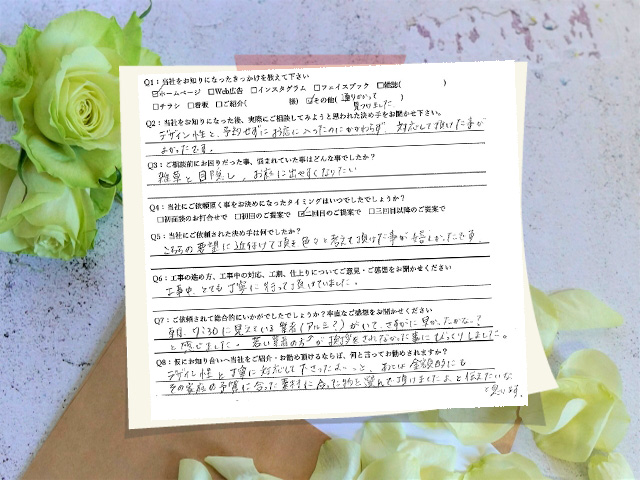 Q1：当社をお知りになったきっかけを教えて下さい
☑ホームページ □Web広告 □インスタグラム □フェイスブック □雑誌( )
□チラシ □看板 □ご紹介( 様) ☑その他( 通りがかって )
見つけました
Q2：当社をお知りになった後、実際にご相談してみようと思われた決め手をお聞かせ下さい。
デザイン性と、予約せずにお店に入ったのにかかわらず、対応して頂いた事が
よかったです。
Q3：ご相談前にお困りだった事、悩まれていた事はどんな事でしたか？
雑草と目隠し、お庭に出やすくなりたい
Q4：当社にご依頼頂く事をお決めになったタイミングはいつでしたでしょうか？
□初面談のお打合せで □初回のご提案で ☑二回目のご提案で □三回目以降のご提案で
Q5：当社にご依頼された決め手は何でしたか？
こちらの要望に近付けて頂き色々と考えて頂けた事が嬉しかったです。
Q6：工事の進め方、工事中の対応、工期、仕上りについてご意見・ご感想をお聞かせください
工事中、とても丁寧に行って頂けていました。
Q7：ご依頼されて総合的にいかがでしたでしょうか？率直なご感想をお聞かせください
に見えている業者(アルミ？)がいて、さすがに見かたかな…？
と感じました。若い業者の方が挨拶をされなかった事にびっくりしました。
Q8：仮にお知り合いへ当社をご紹介・お勧め頂けるならば、何と言ってお勧めされますか？
デザイン性と丁寧に対応して下さったよ〜っと、あとは金額的にも
その家庭の予算に合った素材に合った物を選んで頂けましたよと伝えたいな
と思います。